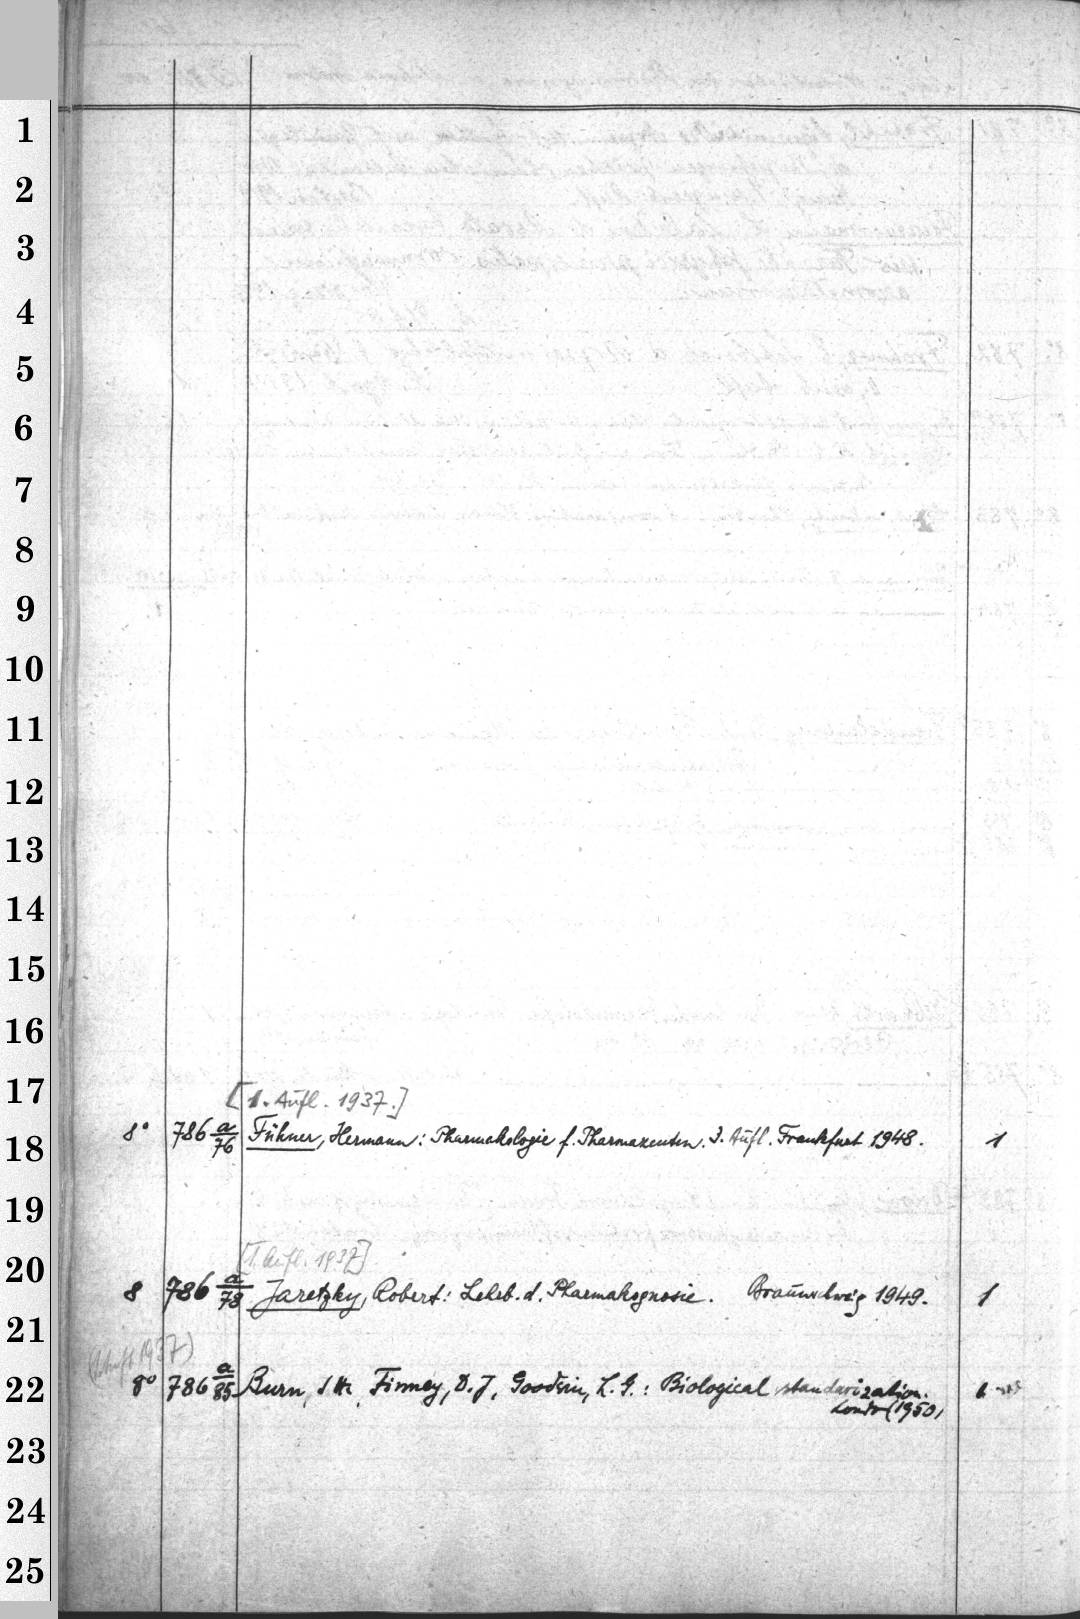 1
2
3
4
5
6
7
8
9
10
11
12
13
14
15
16
17
[1. Aufl. 1937.]
18
8° 786 a/76 Fühner, Hermann: Pharmakologie f. Pharmazeuten. 3. Aufl. Frankfurt 1948. 1
19
[1. Aufl. 1937]
20
8 786 a/78 Jaretzky, Robert: Lehrb. d. Pharmakognosie. Braunschweig 1949. 1
21
(1. Aufl. 1937)
22
8° 786 a/85 Burn, J. H., Finney, D. J., Goodwin, L. G.: Biological standarization.
London (1950)
23
24
25